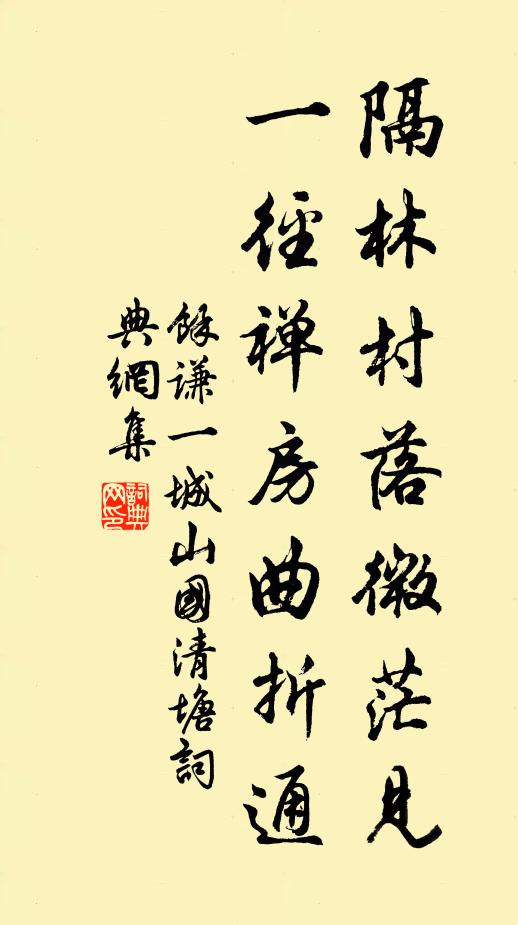 隔林村落微茫見
一徑禅房曲折通
餘謙一城山國清塘詞
典網集
詞典
网印